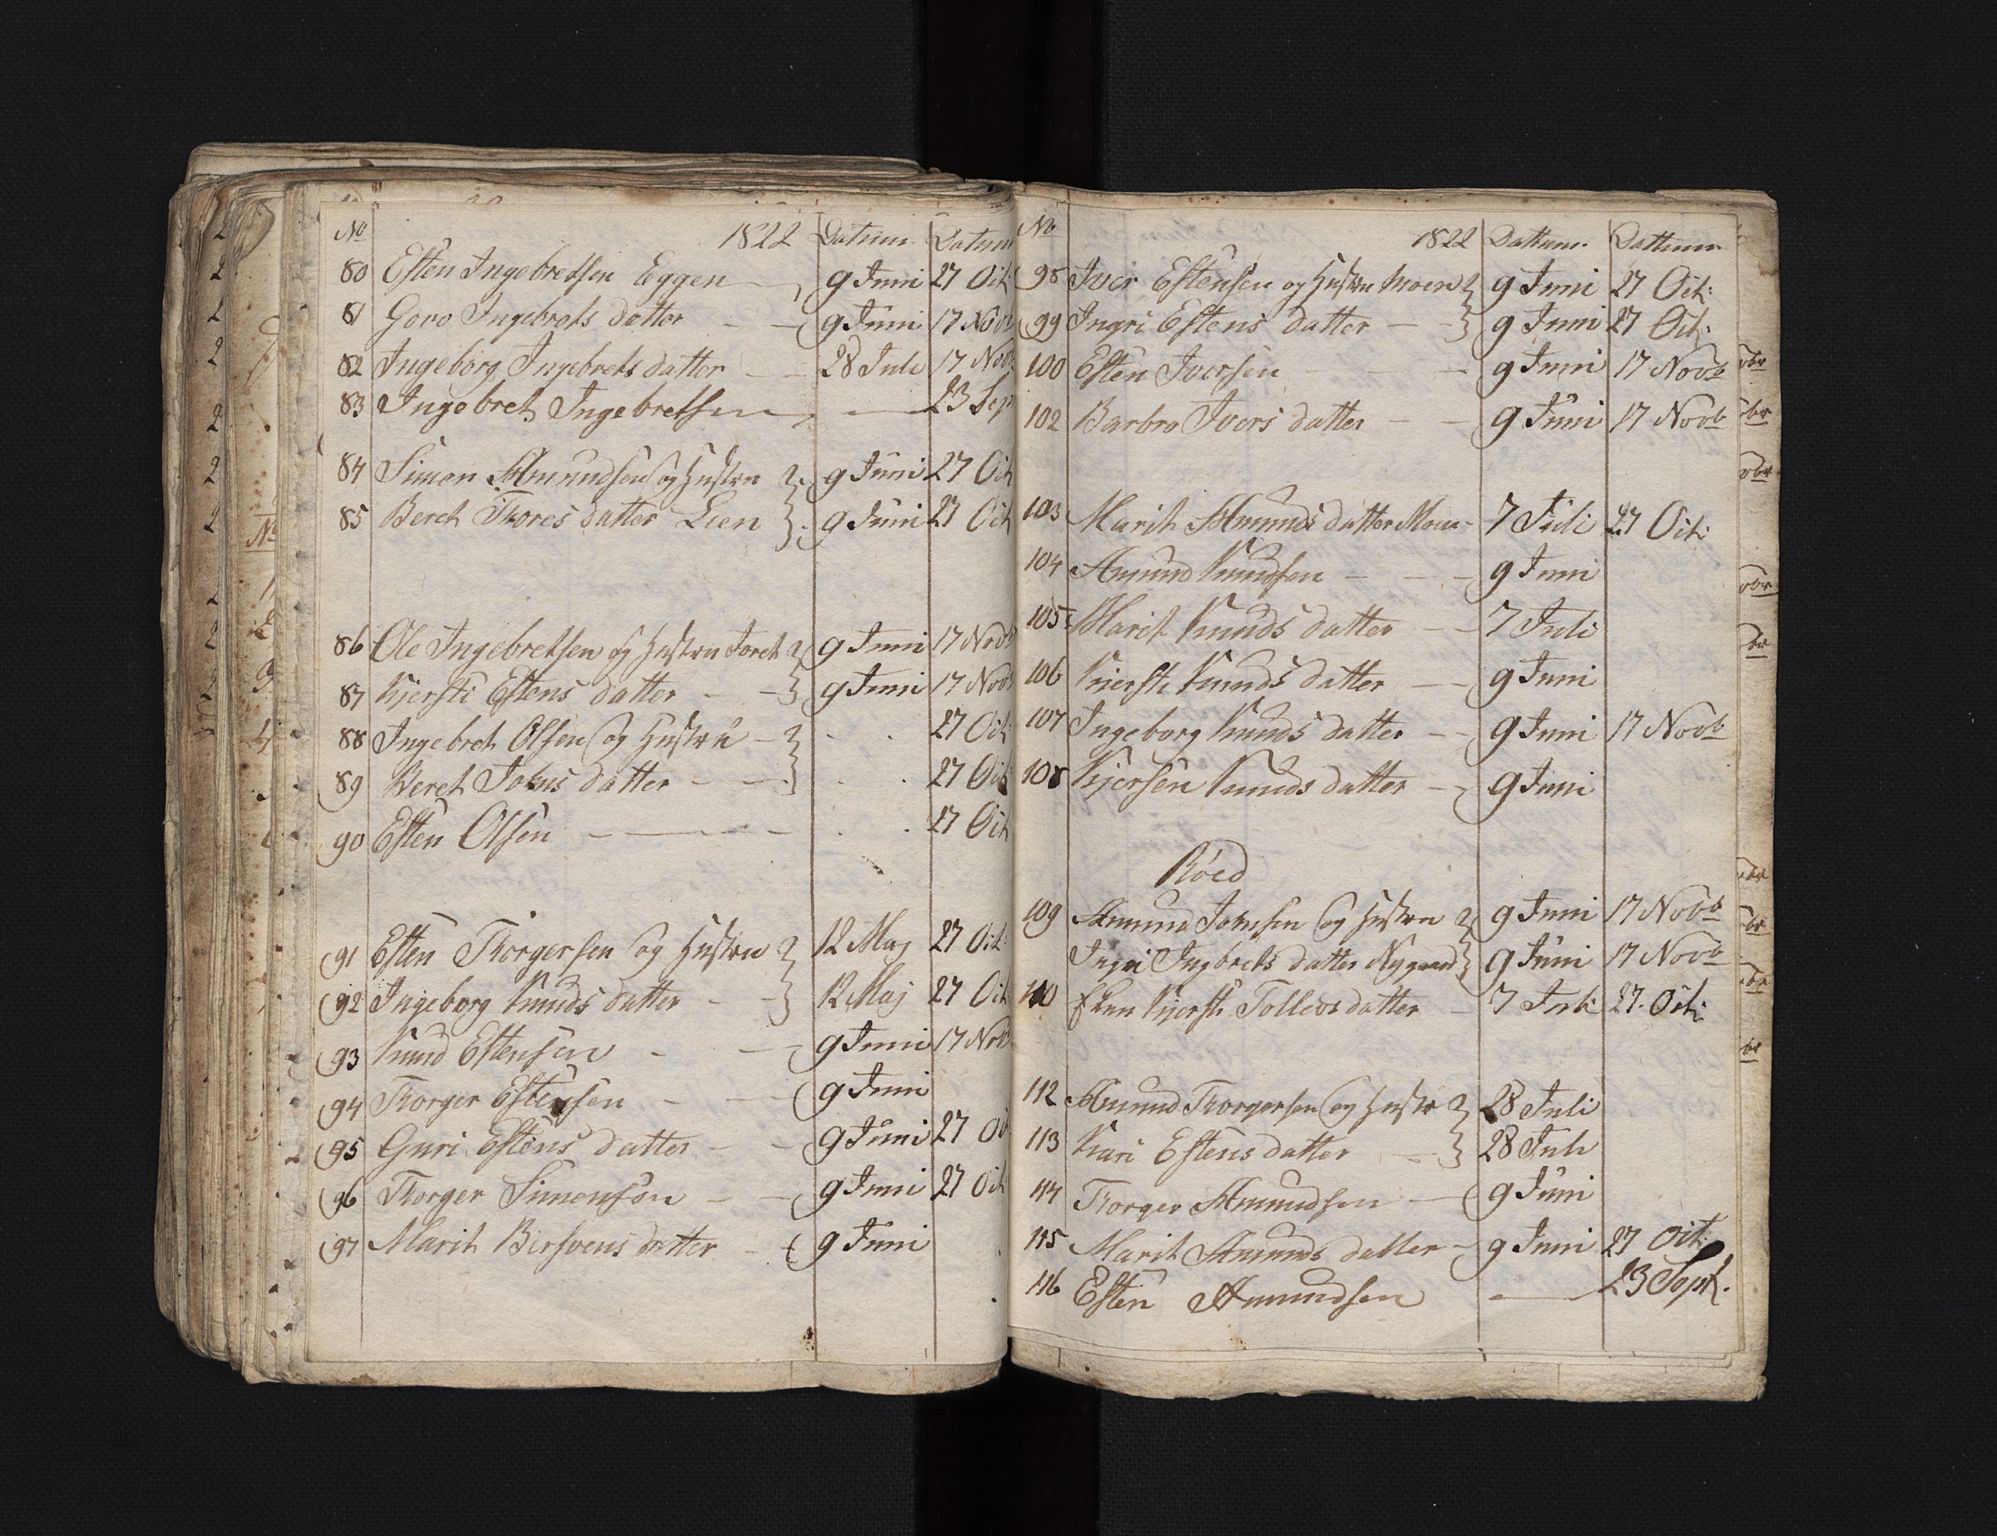 No 1822 Datum Datum
80 Esten Ingebretsen Eggen 9 Juni 27 Oct
81 Goro Ingebrets datter 9 Juni 17 Nov
82 Ingeborg Ingebrets datter 28 Juli 17 Novb
83 Ingebret Ingebretsen 23 Sep
84 Simon Amundsen og Hustru 9 Juni 27 Oct
85 Beret Thores datter Lien 9 Juni 27 Oct
86 Ole Ingebretsen og Hustru 9 Juni 17 Novb
87 Kjersti Estens datter 9 Juni 17 Novb
88 Ingebret Olsen og Hustru 27 Oct:
89 Beret Johns datter 27 Oct
90 Esten Olsen 27 Oct
91 Esten Thorgersen og Hustru 12 Maj 27 Oct:
92 Ingeborg Knuds datter 12 Maj 27 Oct
93 Knud Estensen 9 Juni 17 Novb
94 Thorger Estensen 9 Juni
95 Guri Estens datter 9 Juni 27 Oct
96 Thorger Simensen 9 Juni 27 Oct
97 Marit Bersvens datter 9 Juni
No 1822 Dattum Dattum
98 Iver Estensen og Hustru Moen 9 Juni 27 Oct:
99 Ingri Estens datter 9 Juni 27 Oct:
100 Esten Iversen 9 Juni 17 Novb
102 Barbro Ivers datter 9 Juni 17 Novb
103 Marit Amunds datter Moen 7 Juli 27 Oct:
104 Amund Knudsen 9 Juni
105 Marit Knuds datter 7 Juli
106 Kjersti Knuds datter 9 Juni
107 Ingeborg Knuds datter 9 Juni 17 Novb
108 Kjersten Knuds datter 9 Juni
Röed
109 Amund Johnsen og Hustru 9 Juni 17 Novb
Ingri Ingbrets datter Nygaard 9 Juni 17 Novb
110 Enken Kjersti Tollevs datter 7 Juli 27 Oct:
112 Amund Thorgersen og Hustr 28 Juli
113 Kari Estens datter 28 Juli
114 Thorger Amundsen 9 Juni
115 Marit Amunds datter 9 Juni 27 Oct:
116 Esten Amundsen 23 Sept.